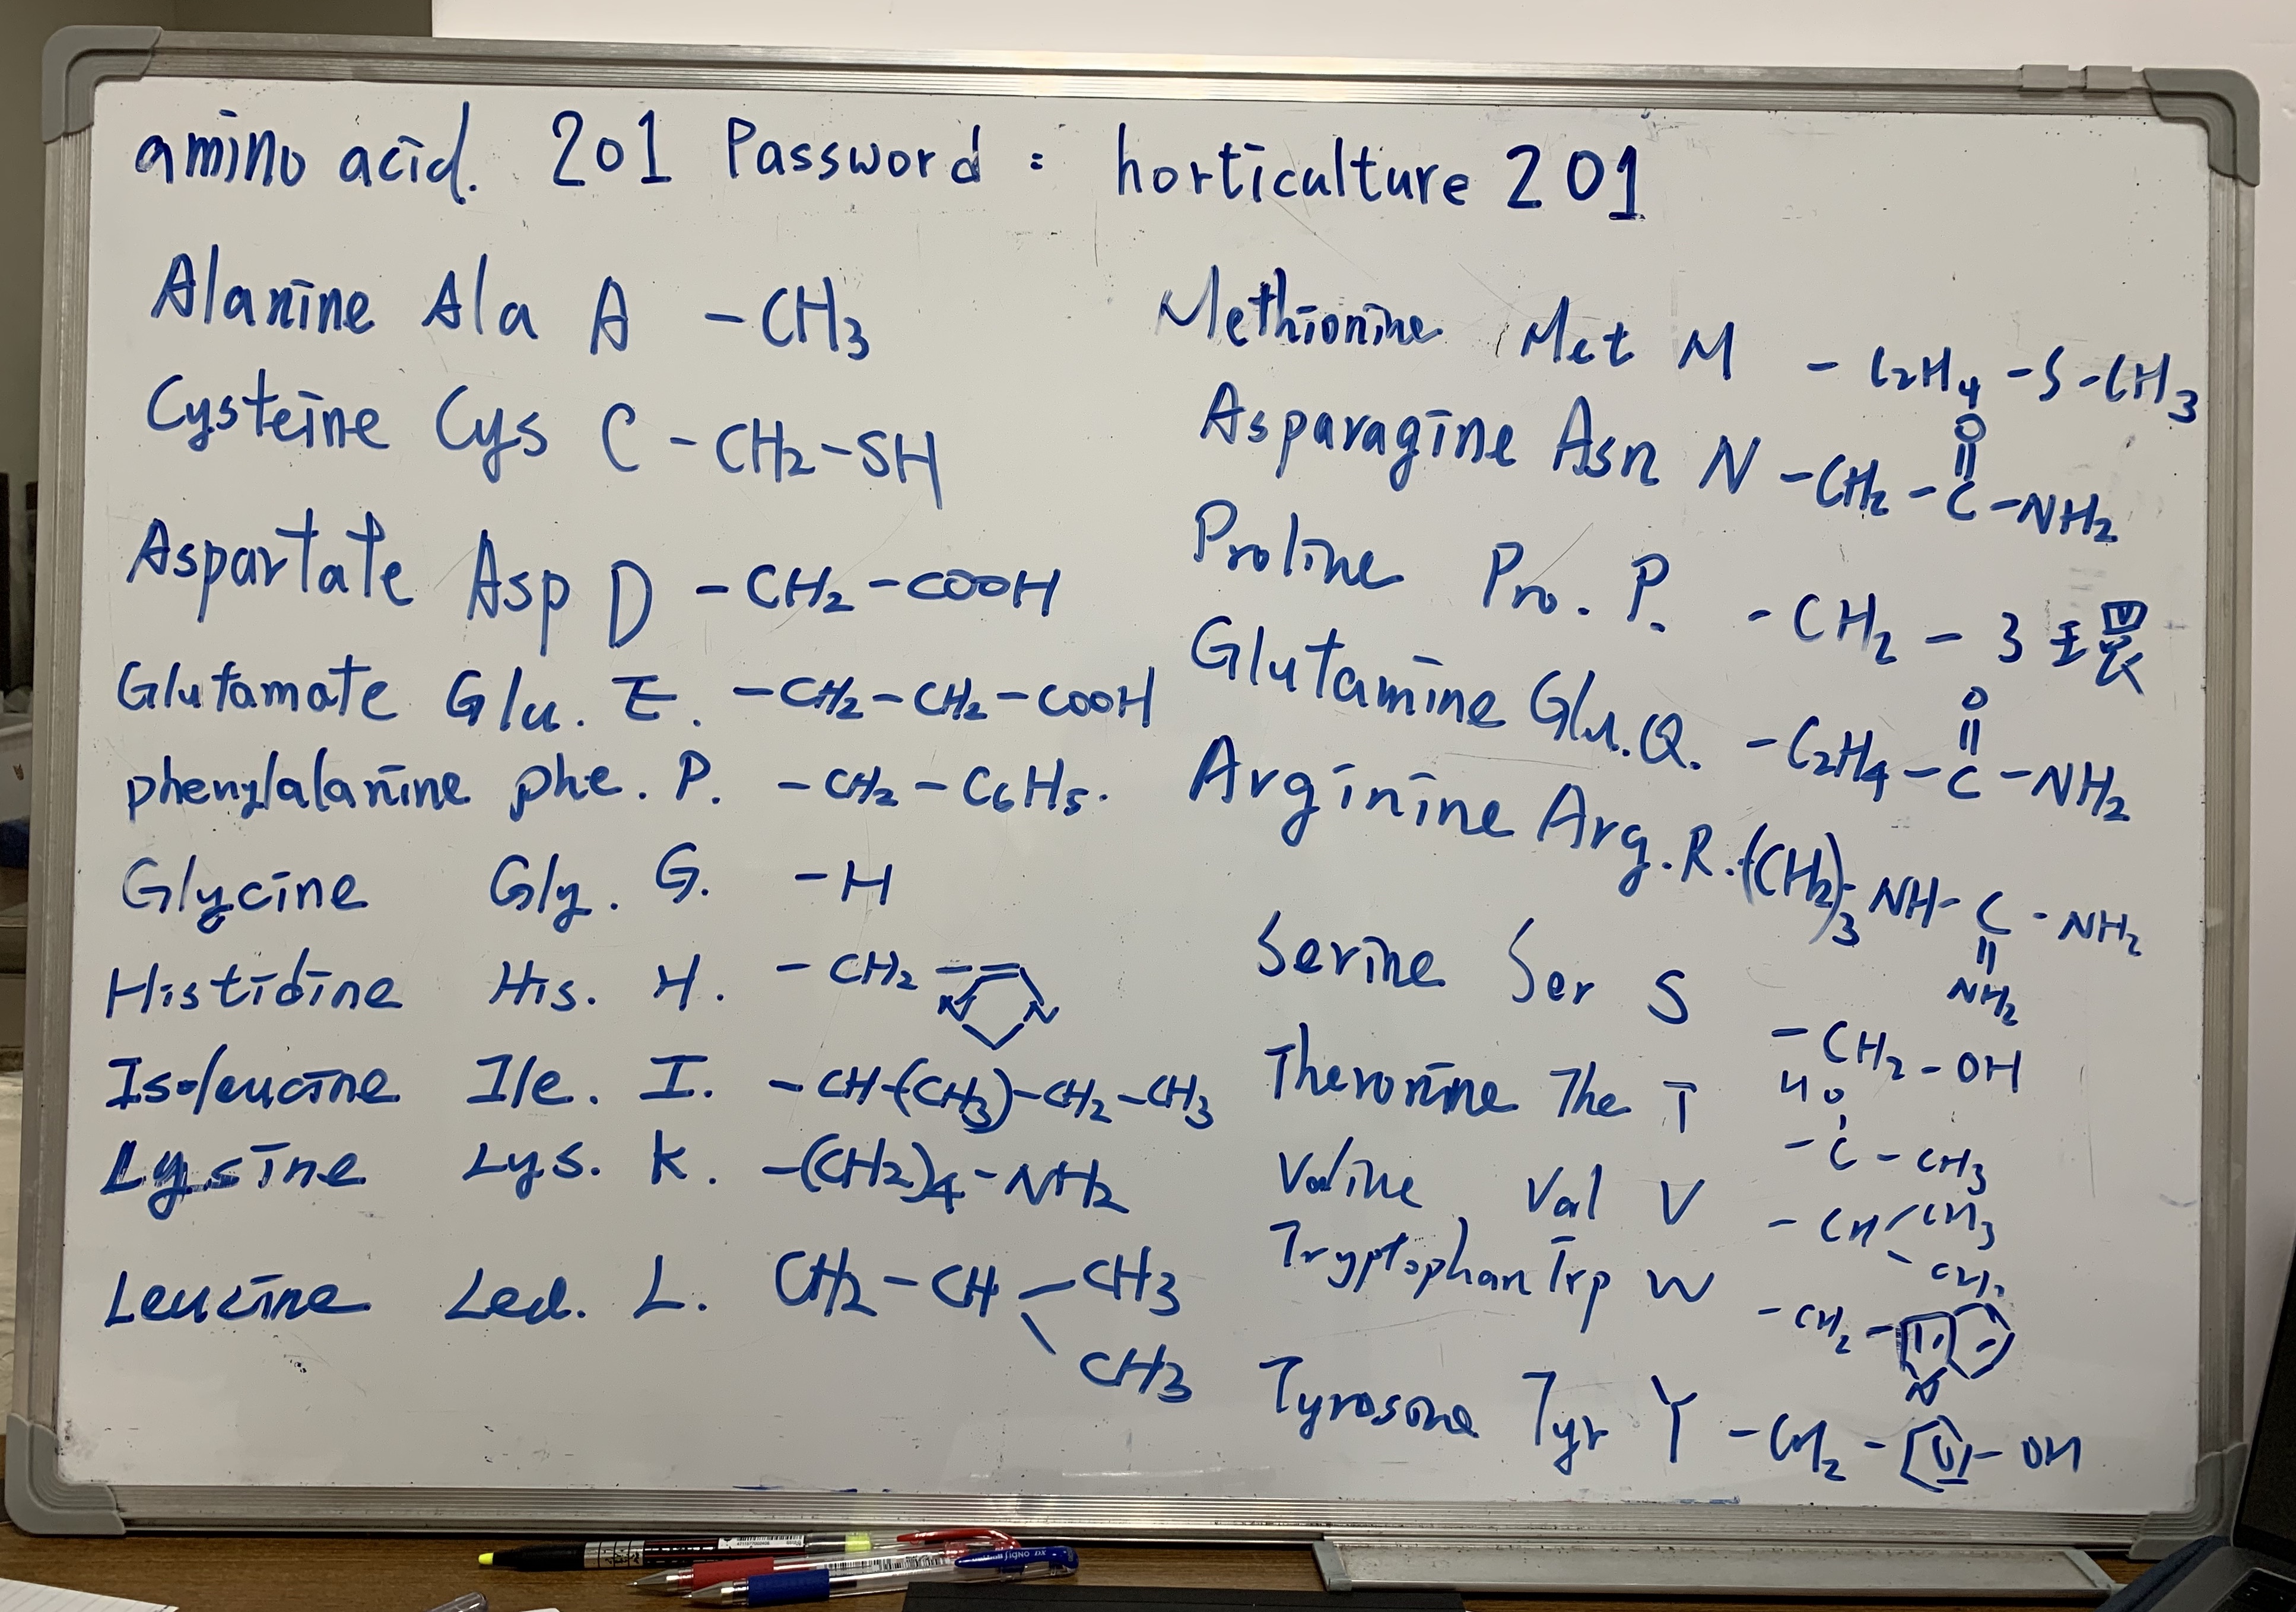 amino acid. 201 Password : horticulture 201
Alanine Ala A -CH3
Cysteine Cys C -CH2-SH
Aspartate Asp D -CH2-COOH
Glutamate Glu. E. -CH2-CH2-COOH
phenylalanine phe. P. -CH2-C6H5.
Glycine Gly. G. -H
Histidine His. H. -CH2 N N
Isoleucine Ile. I. -CH-(CH3)-CH2-CH3
Lysine Lys. K. -(CH2)4-NH2
Leucine Leu. L. CH2-CH CH3
CH3
Methionine Met M -C2H4-S-CH3
O
Asparagine Asn N -CH2-C-NH2
Proline Pro. P. -CH2-3 環
O
Glutamine Q. -C2H4-C-NH2
Arginine Arg. R. (CH2)3-NH-C-NH2
NH2
Serine Ser S -CH2-OH
HO
Theronine The T -C-CH3
Valine Val V -CH CH3
Tryptophan Trp W -CH2-
N
Tyrosine Tyr Y -CH2- -OH